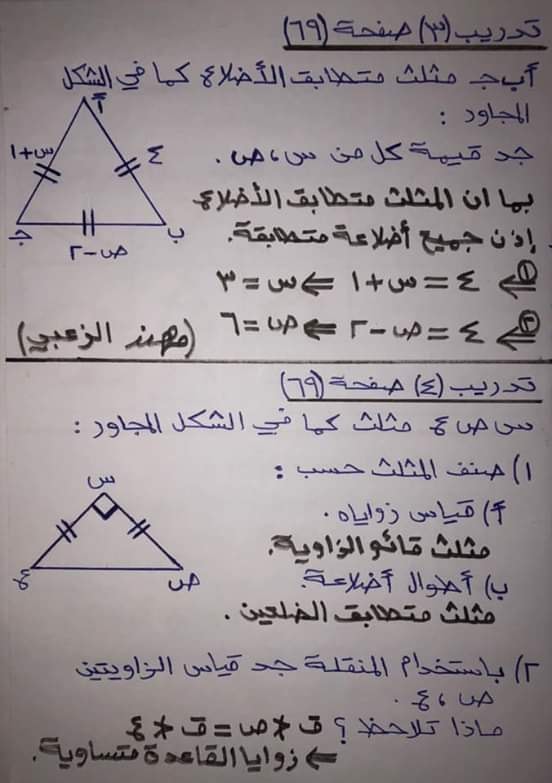 تدريب (٣) صفحة (٦٩)
أ ب جـ مثلث متطابق الأضلاع كما في الشكل
المجاور :
جد قيمة كل من س ، ص .
أ
س+١
٤
جـ
ب
ص-٢
بما ان المثلث متطابق الأضلاع
إذن جميع أضلاعة متطابقة.
① ⇐ ٤ = س+١ ⇐ س = ٣
② ⇐ ٤ = ص-٢ ⇐ ص = ٦
(مهند الزعبي)
تدريب (٤) صفحة (٦٩)
س ص ع مثلث كما في الشكل المجاور :
١) صنف المثلث حسب :
أ) قياس زواياه .
مثلث قائم الزاوية.
ب) أطوال أضلاعة.
مثلث متطابق الضلعين .
س
ع
ص
٢) باستخدام المنقلة جد قياس الزاويتين
ص ، ع .
ماذا تلاحظ ؟ ق∢ص = ق∢ع
⇐ زوايا القاعدة متساوية.